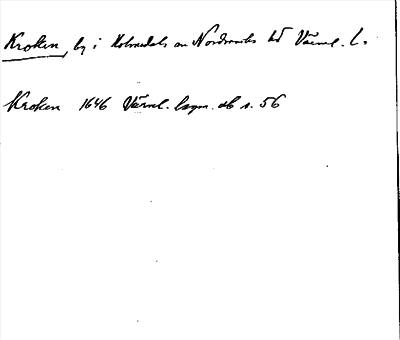 Kroken, by i Holmedals sn Nordmarks hd Värml. l.
Kroken 1646 Värml. lagm. db s. 56